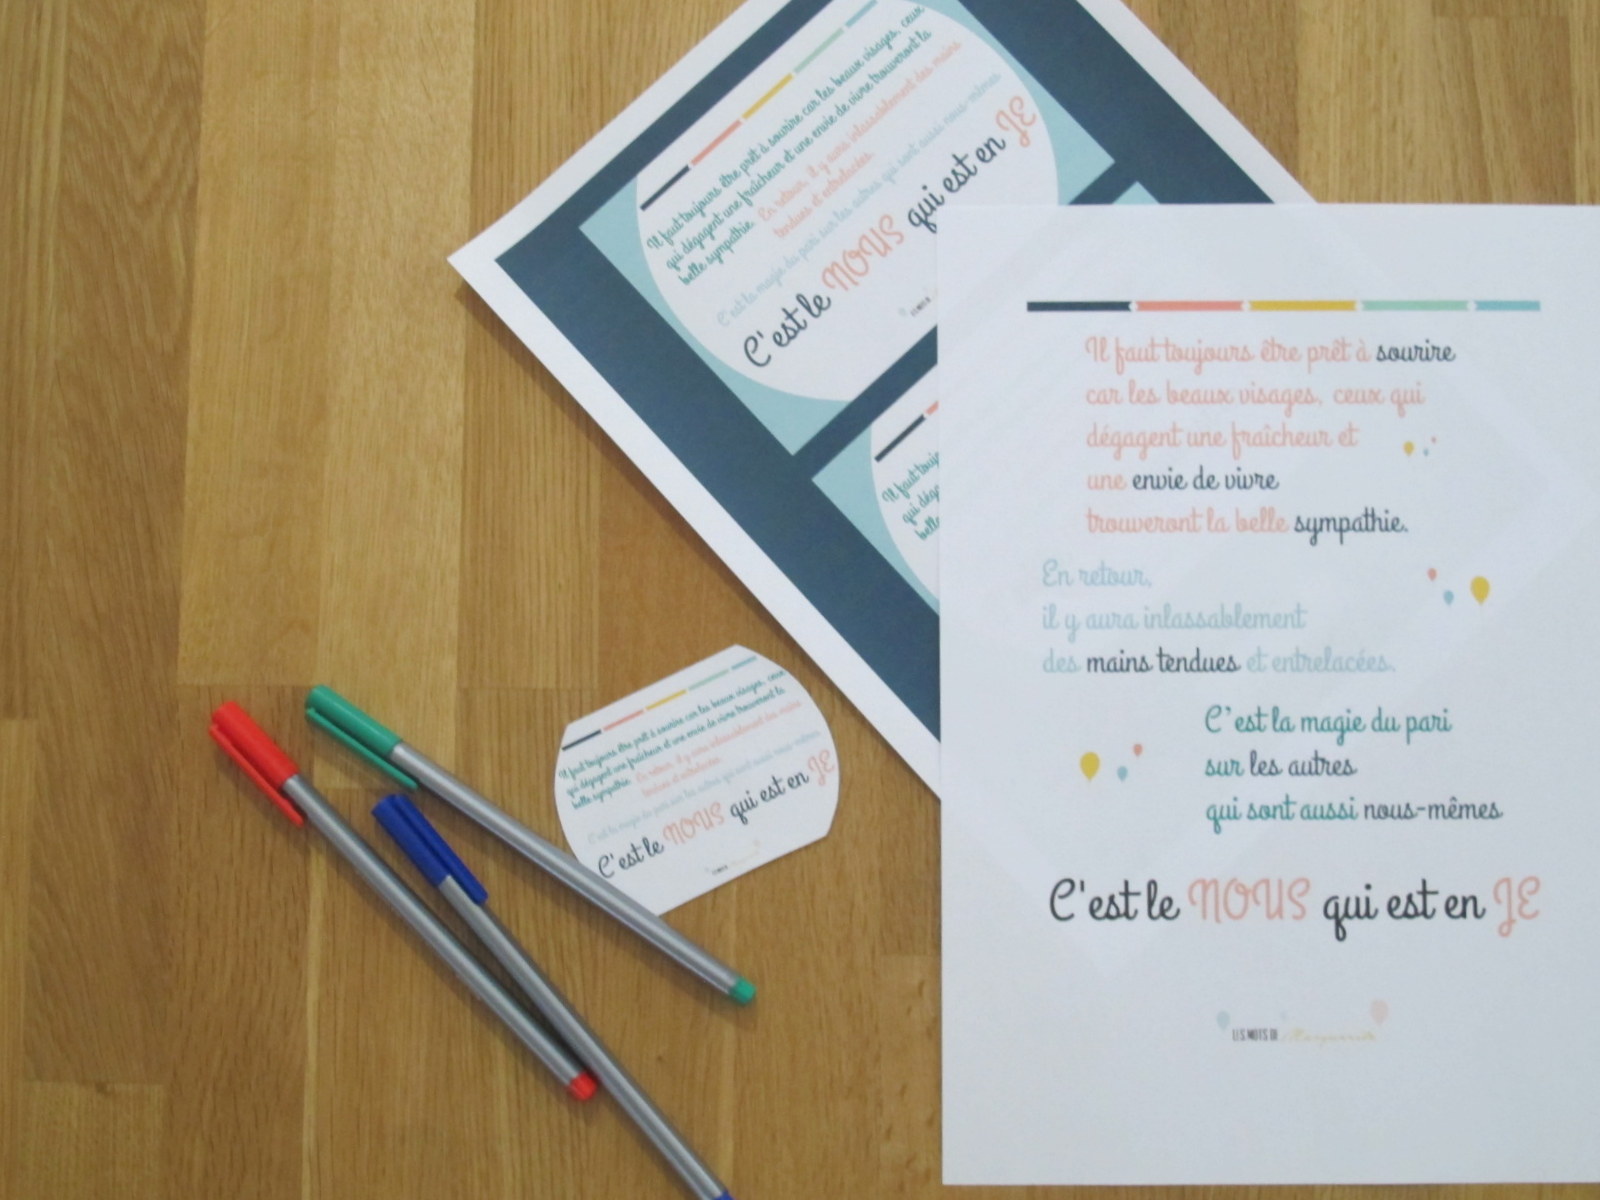 Il faut toujours être prêt à sourire car les beaux visages, ceux
qui dégagent une fraîcheur et une envie de vivre trouveront la
belle sympathie. En retour, il y aura inlassablement des mains
tendues et entrelacées.
C'est la magie du pari sur les autres qui sont aussi nous-mêmes
C'est le NOUS qui est en JE
Il faut toujours être prêt à sourire
car les beaux visages, ceux qui
dégagent une fraîcheur et
une envie de vivre
trouveront la belle sympathie.
En retour,
il y aura inlassablement
des mains tendues et entrelacées.
C'est la magie du pari
sur les autres
qui sont aussi nous-mêmes
C'est le NOUS qui est en JE
LES MOTS DE Marguerite
Il faut toujours être prêt à sourire car les beaux visages, ceux
qui dégagent une fraîcheur et une envie de vivre trouveront la
belle sympathie. En retour, il y aura inlassablement des mains
tendues et entrelacées.
C'est la magie du pari sur les autres qui sont aussi nous-mêmes
C'est le NOUS qui est en JE
Il faut
qui
belle